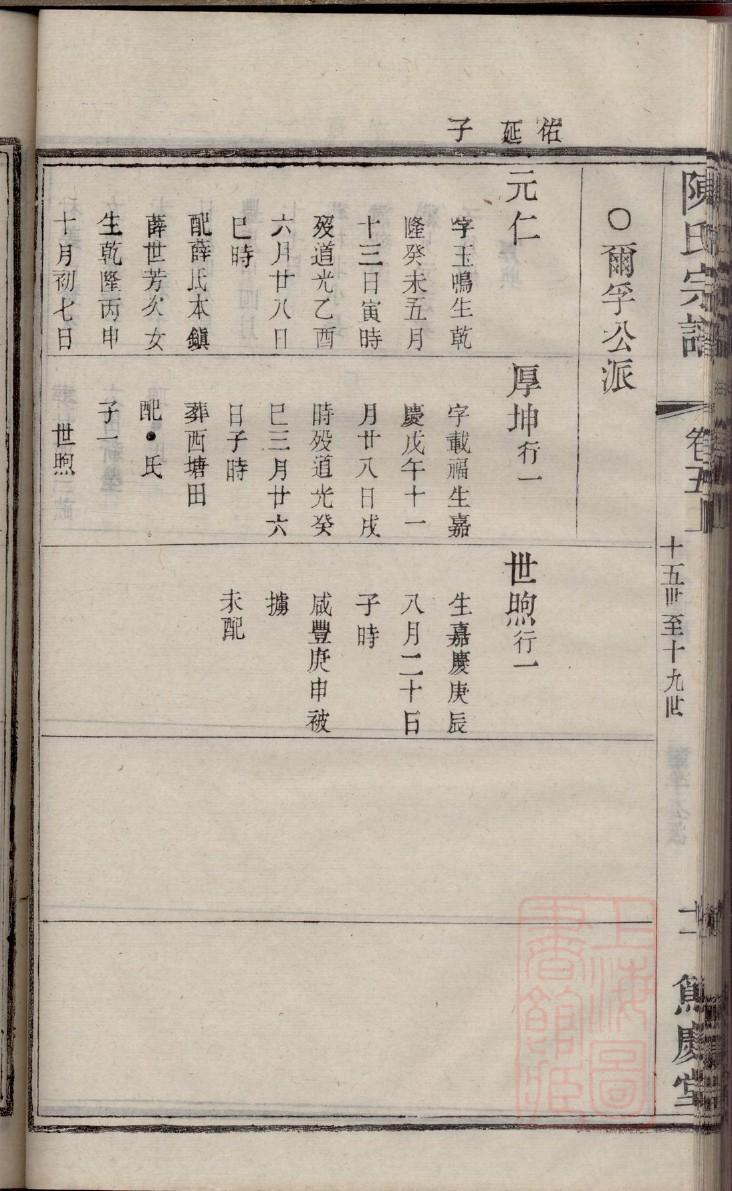 陳氏宗譜
卷五上
十五世至十九世
○爾孚公派
佑
延
子
元仁
字玉鳴生乾
隆癸未五月
十三日寅時
歿道光乙酉
六月廿八日
巳時
配薛氏本鎮
薛世芳次女
生乾隆丙申
十月初七日
厚坤行一
字載福生嘉
慶戊午十一
月廿八日戌
時歿道光癸
巳三月廿六
日子時
葬西塘田
配•氏
子一
世煦
世煦行一
生嘉慶庚辰
八月二十日
子時
咸豐庚申被
擄
未配
慶堂
上海圖
書館藏